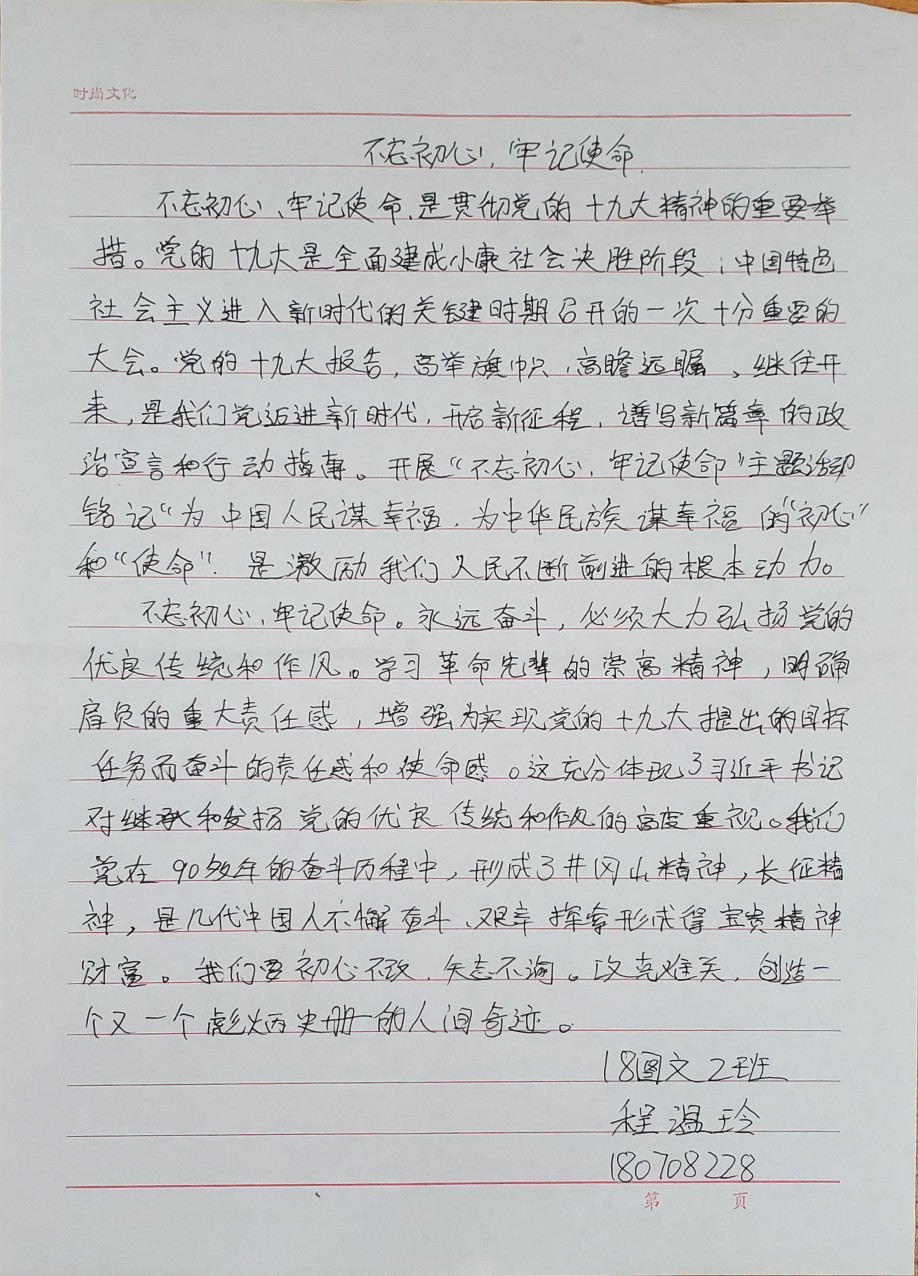 时尚文化
不忘初心,牢记使命.
不忘初心、牢记使命,是贯彻党的十九大精神的重要举
措。党的十九大是全面建成小康社会决胜阶段;中国特色
社会主义进入新时代的关键时期召开的一次十分重要的
大会。党的十九大报告,高举旗帜,高瞻远瞩、继往开
来,是我们党迈进新时代,开启新征程,谱写新篇章的政
治宣言和行动指南。开展“不忘初心,牢记使命”主题活动
铭记“为中国人民谋幸福,为中华民族谋幸福的“初心”
和“使命”.是激励我们人民不断前进的根本动力。
不忘初心,牢记使命。永远奋斗,必须大力弘扬党的
优良传统和作风。学习革命先辈的崇高精神,明确
肩负的重大责任感,增强为实现党的十九大提出的目标
任务而奋斗的责任感和使命感。这充分体现了习近平书记
对继承和发扬党的优良传统和作风的高度重视。我们
党在90多年的奋斗历程中,形成了井冈山精神,长征精
神,是几代中国人不懈奋斗、艰辛探索形成得宝贵精神
财富。我们要初心不改,矢志不渝。攻克难关,创造一
个又一个彪炳史册的人间奇迹。
18图文2班
程温玲
180708228
第 页